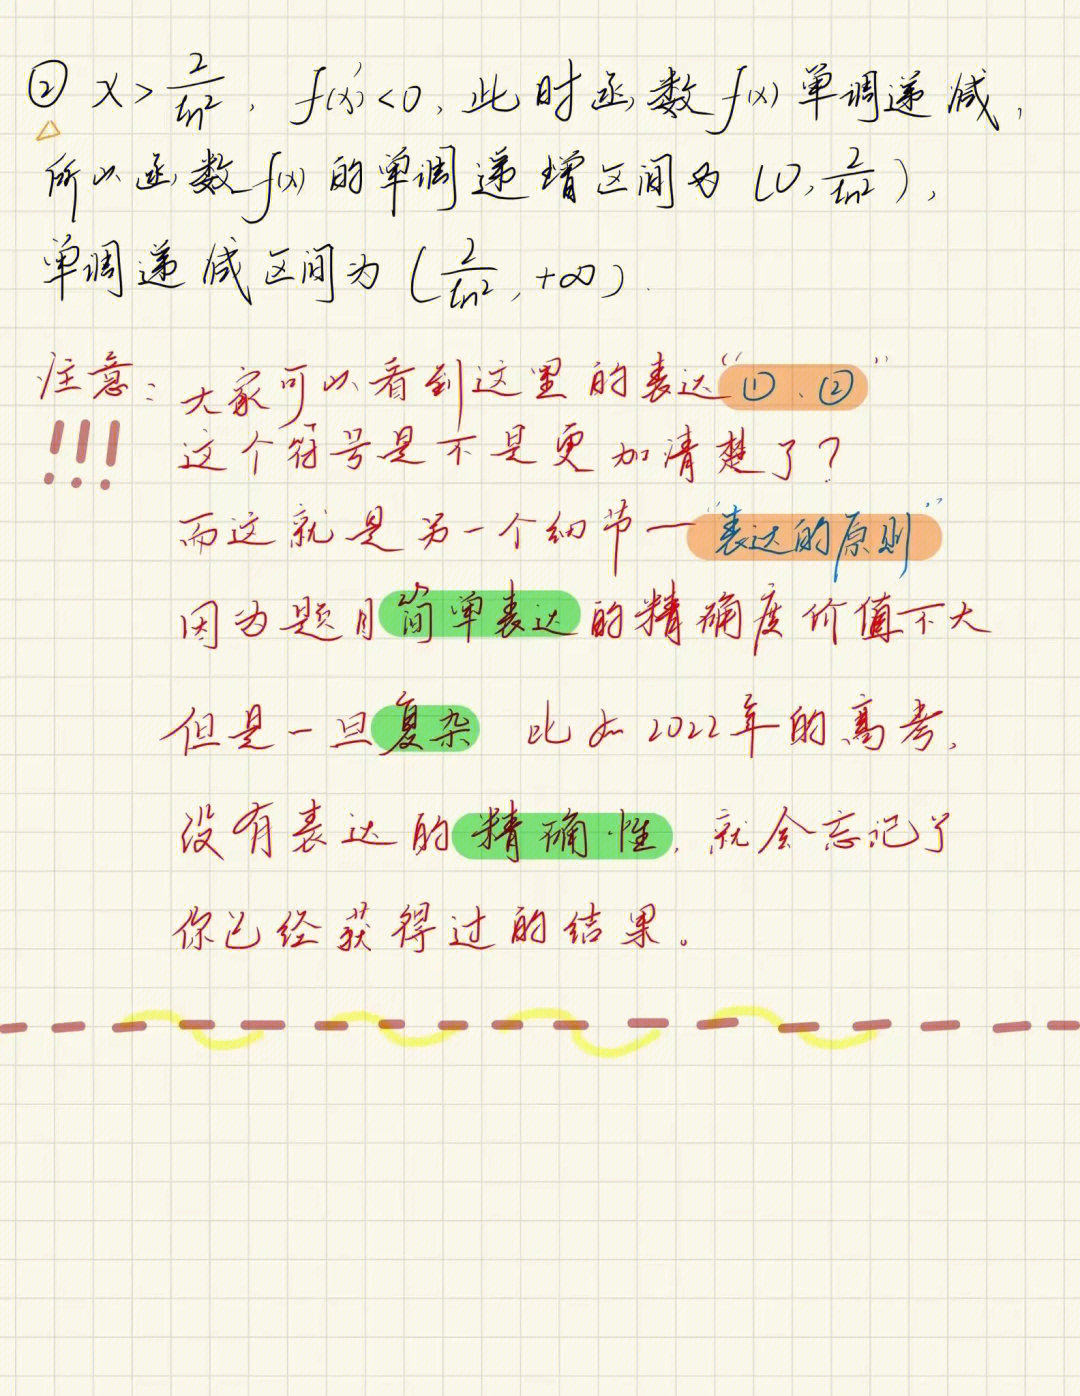 ② x>2/ln2, f(x)'<0, 此时函数f(x)单调递减,
所以函数f(x)的单调递增区间为(0, 2/ln2),
单调递减区间为(2/ln2, +∞).
注意: 大家可以看到这里的表达“①、②”
!!! 这个符号是不是更加清楚了?
而这就是另一个细节一“表达的原则”
因为题目简单表达的精确度价值不大
但是一旦复杂 比如2022年的高考,
没有表达的精确性, 就会忘记了
你已经获得过的结果。